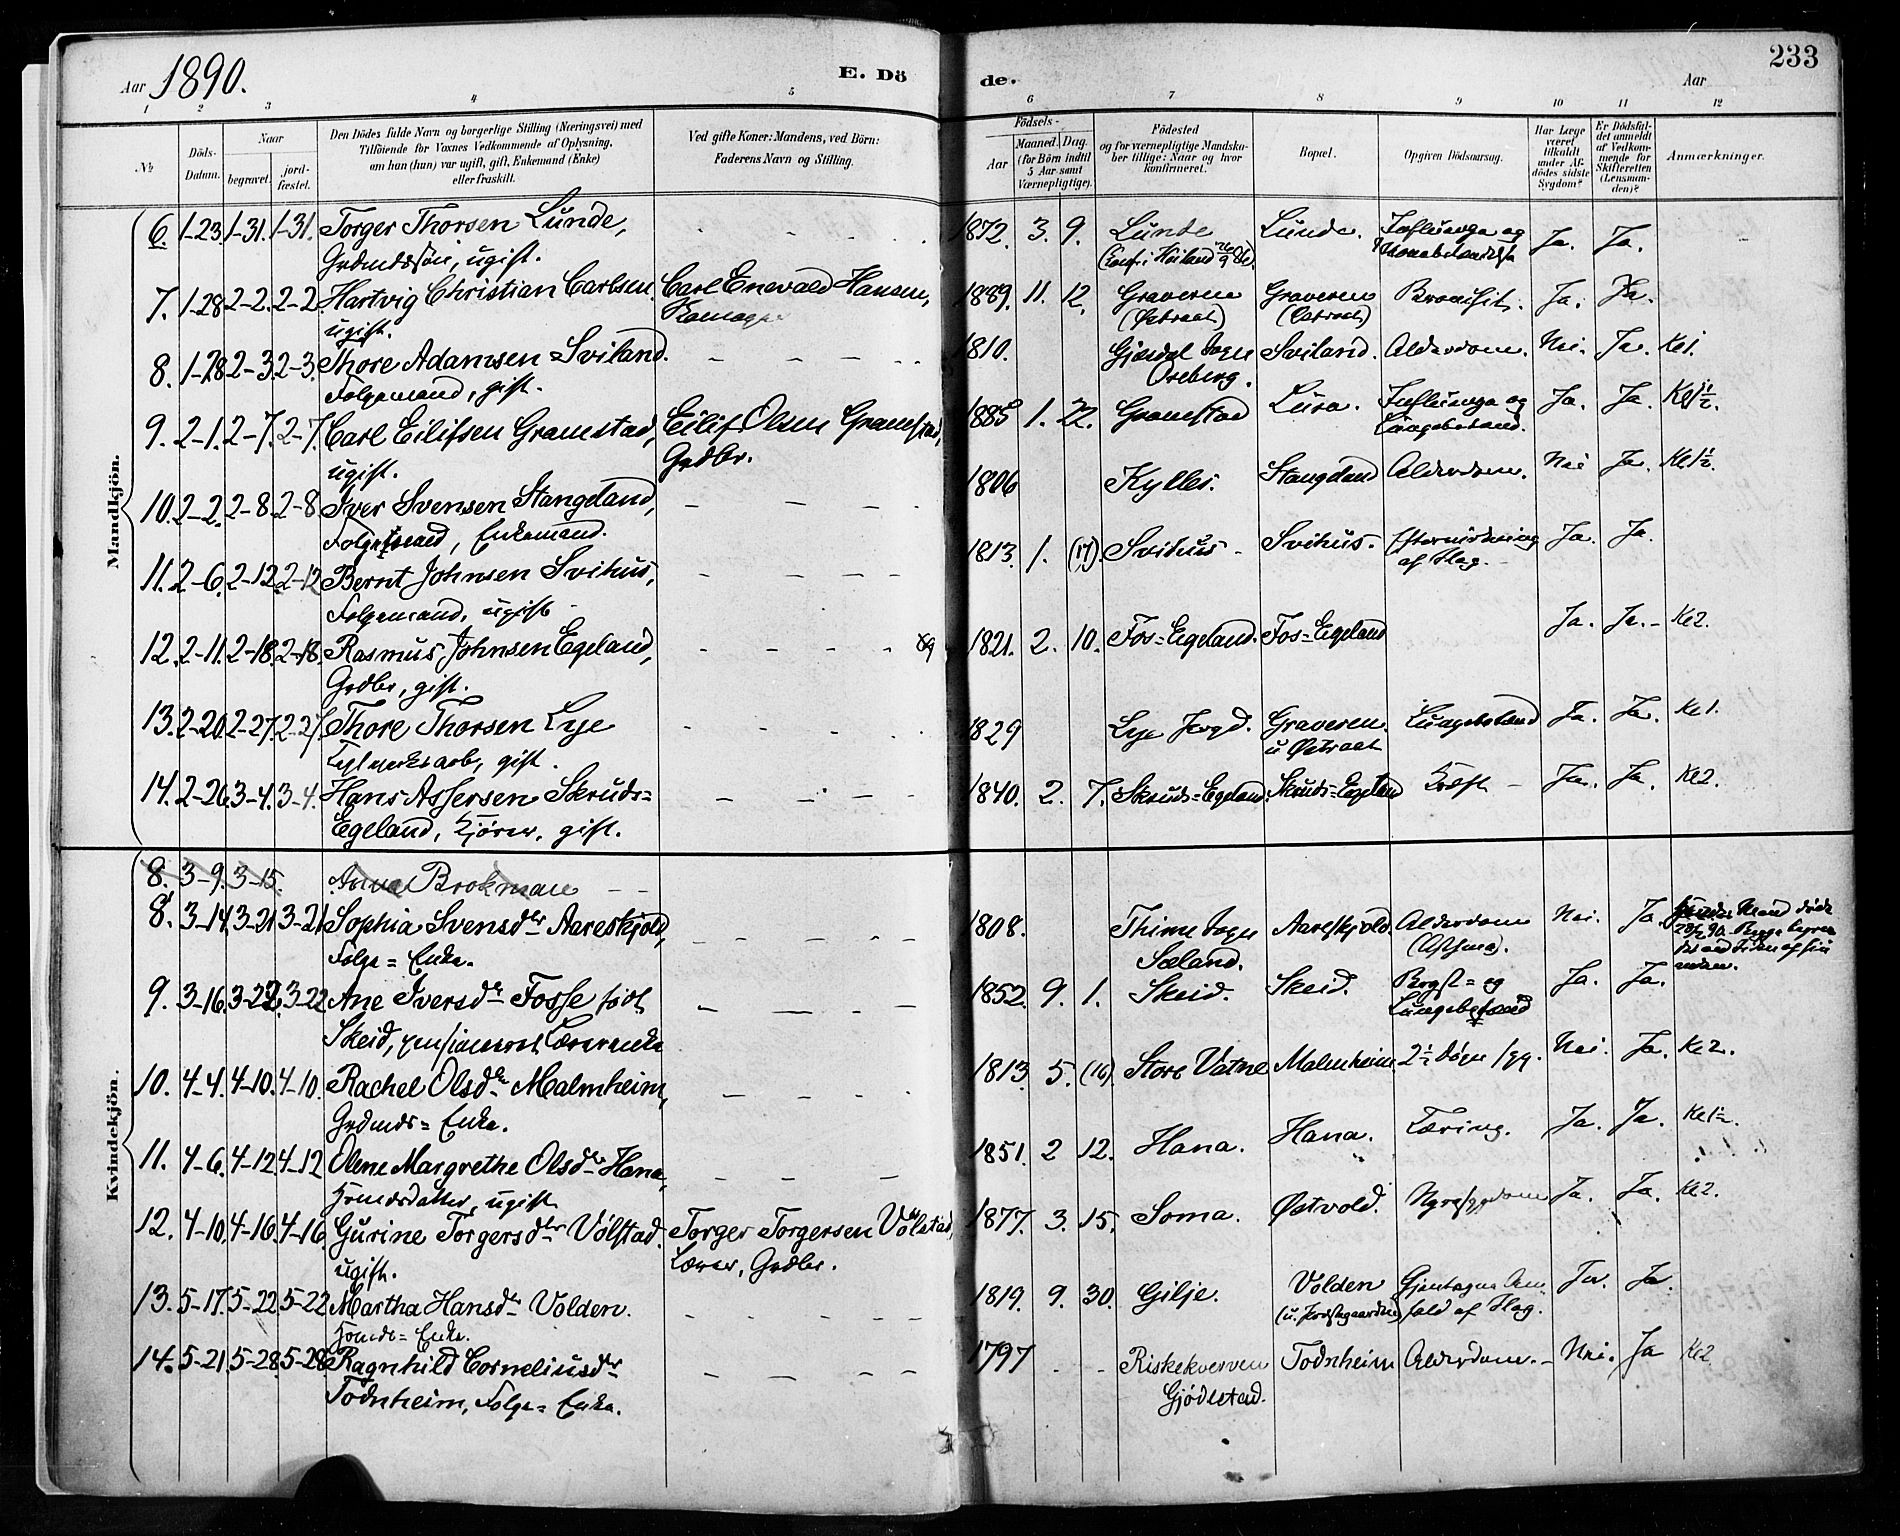 Aar 1890.
E. Dö
de.
Aar
233
1 2 3 4 5 6 7 8 9 10 11 12
No
Döds-Datum.
Naar
begravet.
jord-fæstet.
Den Dödes fulde Navn og borgerlige Stilling (Næringsvei) med
Tilföiende for Voxnes Vedkommende af Oplysning,
om han (hun) var ugift, gift, Enkemand (Enke)
eller fraskilt.
Ved gifte Koner: Mandens, ved Börn:
Faderens Navn og Stilling.
Födsels-
Aar
Maaned. Dag.
(for Börn indtil
5 Aar samt
Værnepligtige).
Födested
og for værnepligtige Mandska-
ber tillige: Naar og hvor
konfirmeret.
Bopæl.
Opgiven Dödsaarsag.
Har Læge
været
tilkaldt
under Af-
dödes sidste
Sygdom?
Er Dödsfal-
det anmeldt
af Vedkom-
mende for
Skifteretten
(Lensman-
den)?
Anmærkninger.
Mandkjön.
6. 1-23. 1-31. 1-31. Torger Thorsen Lunde, 1872. 3. 9. Lunde Lunde. Influenza og Ja. Ja.
Grdmdssøn, ugift.
7. 1-28 2-2. 2-2. Hartvig Christian Carlsen, Carl Enevald Hansen, 1889. 11. 12. Graveren Graveren Bronchit. Ja. Ja.
ugift. (Østraat) (Østraat)
8. 1-28 2-3. 2-3. Thore Adamsen Sviland. 1810. Gjesdal Sogn Sviland. Alderdom. Nei. Ja. Kel.
Folgemand, gift. Oseberg.
9. 2-1. 2-7. 2-7. Carl Eilifsen Gramstad, Eilif Olsen Gramstad, 1885 1. 22. Gramstad Lura. Influenza og Ja. Ja. Kel½.
ugift. Grdbr. Lungebetænd.
10. 2-2. 2-8. 2-8. Iver Svensen Stangeland, 1806 Kylles. Stangeland Alderdom. Nei Ja. Kel½.
Folgemand, Enkemand.
11. 2-6. 2-12. 2-12 Bernt Johnsen Svihus, 1813. 1. (17). Svihus Svihus. Eftervirkning Ja. Ja.
Folgemand, ugift af Slag.
12. 2-11. 2-18. 2-18. Rasmus Johnsen Egeland, 1821. 2. 10. Fos=Egeland. Fos=Egeland Ja. Ja. Ke2.
Grdbr, gift.
13. 2-20. 2-27. 2-27. Thore Thorsen Lye 1829 Lye Graveren Lungebetænd Ja. Ja. Kel.
gift. u Østraat
14. 2-26. 3-4. 3-4. Hans Assersen Skruds= 1840. 2. 7. Skruds=Egeland. Skruds=Egeland Kræft Ja. Ja. Ke2.
Egeland, gift.
Kvindekjön.
8. 3-9. 3-15. Anna Brokman
8. 3-14. 3-21. 3-21 Sophia Svensdtr Aareskjold, 1808. Thime Sogn Aareskjold. Alderdom Nei. Ja
Folge=Enke. Sæland. (Asthma).
9. 3-16. 3-22. 3-22 Ane Iversdtr Fosse født 1852. 9. 1. Skeid. Skeid. Bryst= og Ja. Ja.
Skeid, pensioneret Lærerenke Lungebetænd
10. 4-4. 4-10. 4-10. Rachel Olsdtr Malmheim, 1813. 5. (16). Store Vatne Malmheim 2½ Døgn syg. Nei. Ja. Ke2.
Grdmds=Enke.
11. 4-6. 4-12. 4-12 Olene Margrethe Olsdtr Hana, 1851. 2 12. Hana. Hana. Tæring. Ja. Ja. Kel½.
ugift
12. 4-10. 4-16. 4-16. Gurine Torgersdtr Vølstad. Torger Torgersen Vølstad, 1877. 3. 15. Soma. Østvold. Nyresygdom Ja. Ja. Ke2.
ugift. Lærer, Grdbr.
13. 5-17. 5-22. 5-22 Martha Hansdtr Volden. 1819. 9. 30. Gilje. Volden Gjentagne An Ja. Ja
Enke. fald af Slag.
14. 5-21. 5-28. 5-28 Ragnhild Corneliusdtr 1797 Riskekverven Todnheim Alderdom. Nei. Ja Ke2
Todnheim, Folge=Enke. Gjødlestad.